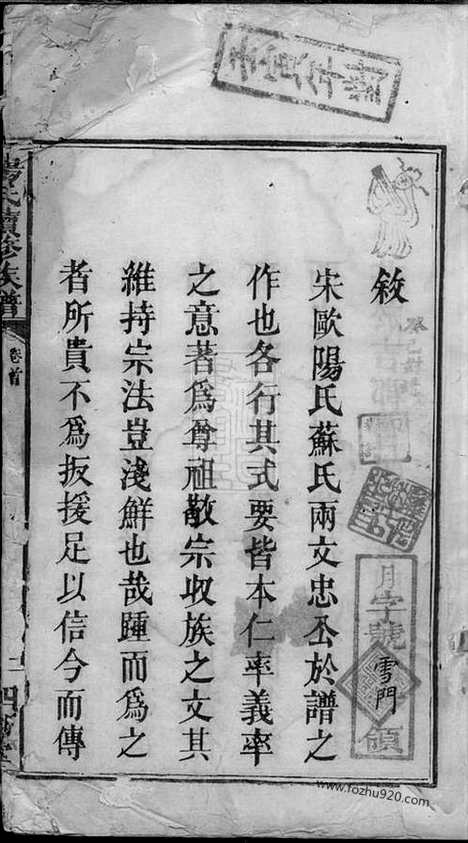 敘
宋歐陽氏蘇氏兩文忠公於譜之
作也各行其式要皆本仁率義率
之意著爲尊祖敬宗收族之文其
維持宗法豈淺鮮也哉踵而爲之
者所貴不爲扳援足以信今而傳
氏續修族譜
卷首
月字號
雪門
領
www.fozhu920.com